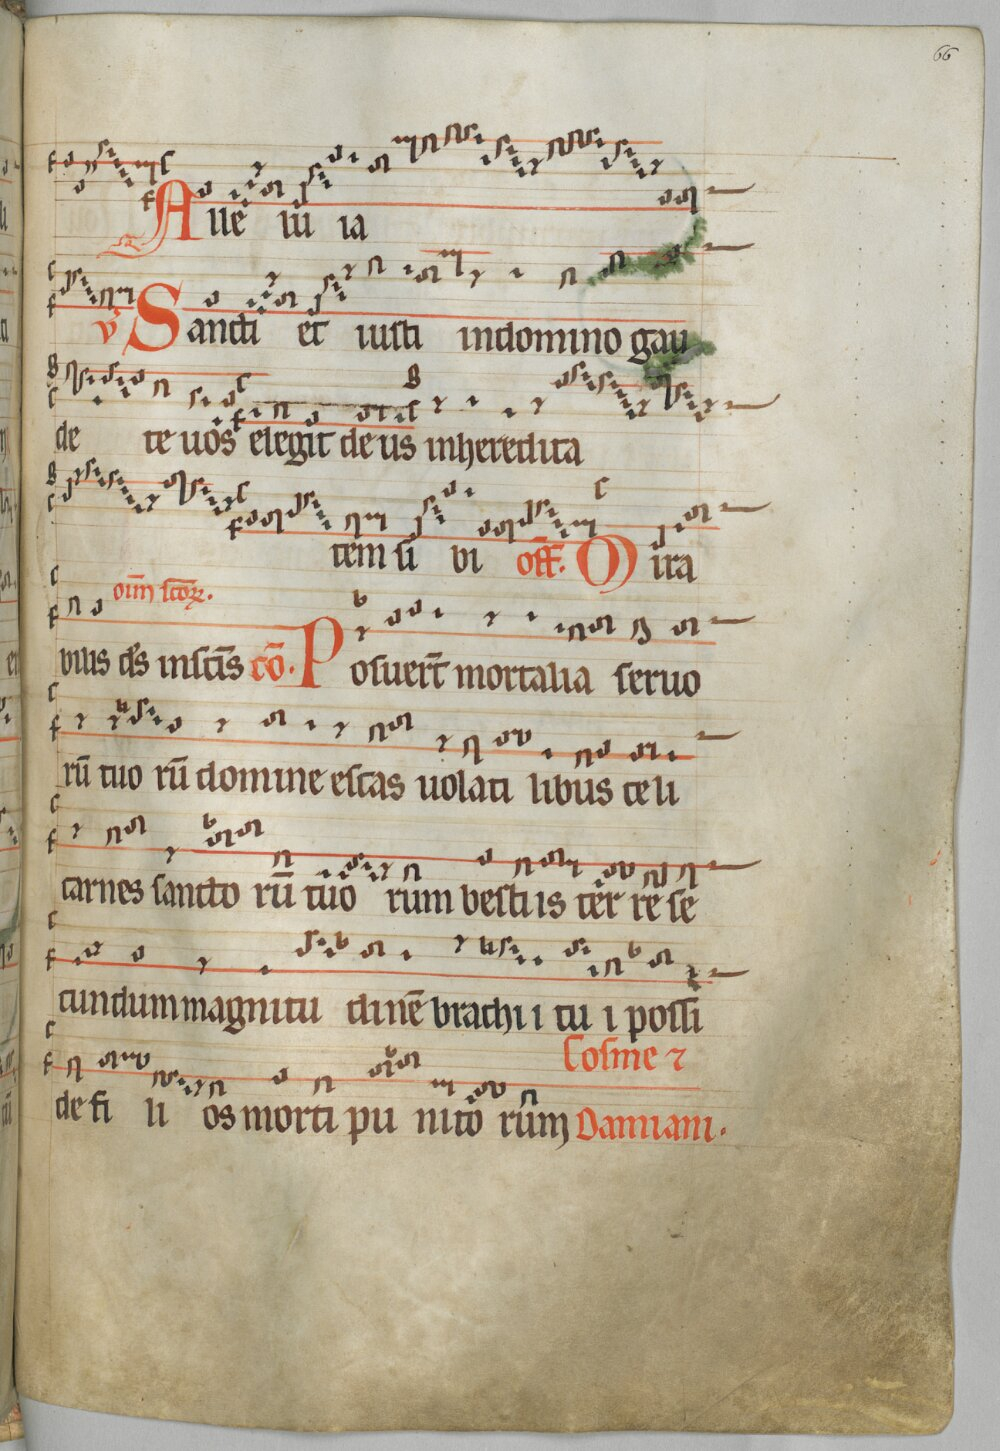 66
Alle lu ia
v̊ Sancti et iusti indomino gau
de te uos elegit de us inheredita
tem si bi off. Mira
oīm scōꝝ.
bilis ds̄ inscīs cō. Posuer̄t mortalia seruo
rū tuo rū domine escas uolati libus celi
carnes sancto rū tuo rum bestiis ter re se
cundum magnitu dinē brachi i tu i possi
Cosme ⁊
de fi li os morti pu nito rum Damiani.